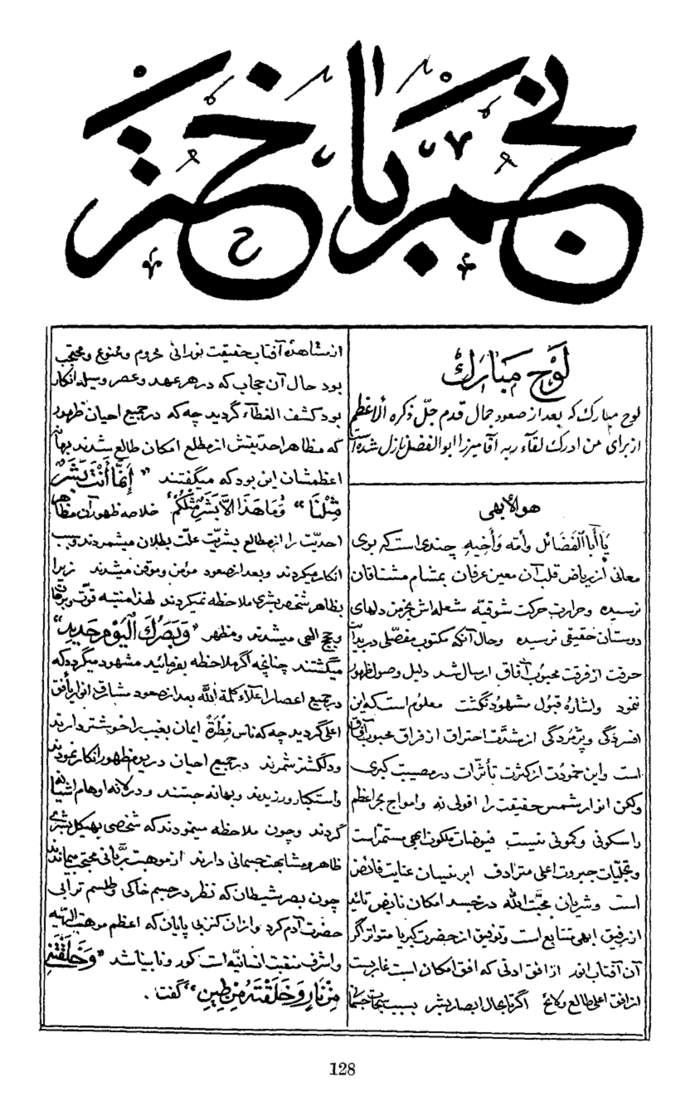 نجم باختر
لوح مبارک
لوح مبارک که بعد از صعود جمال قدم جلّ ذکره الاعظم
از برای من ادرک لقآء ربه آقا میرزا ابوالفضل نازل شده است
هو الأبهی
یا أبا الفضائل وأمّه وأخیه چندی است که بوی
معانی از ریاض قلب آن معین عرفان بمشام مشتاقان
نرسیده وحرارت حرکت شوقیّه شعله اش بخرمن دلهای
دوستان حقیقی نرسیده وحال آنکه مکتوب مفصّلی در بدایت
حرقت از فرقت محبوب آفاق ارسال شد دلیل وصول ظهور
ننمود واشارهٔ قبول مشهود نگشت معلوم است که این
افسردگی وپژمردگی از شدّت احتراق از فراق محبوب آفاق
است واین خمودت از کثرت تأثّرات در مصیبت کبری
ولکن انوار شمس حقیقت را افولی نه وامواج بحر اعظم
را سکونی وکمونی نیست فیوضات ملکوت ابهی مستمرّ است
وتجلّیات جبروت اعلی مترادف ابر نیسان عنایت فائض
است وشریان محبّت الله در جسد امکان نابض تائید
از رفیق ابهی متتابع است وتوفیق از حضرت کبریا متواتر اگر
آن آفتاب انور از افق ادنی که افق امکان است غاربست
از افق اعلی طالع ولائح اگر تا بحال ابصار بشر بسبب سبحات جسمانی
از مشاهدهٔ آفتاب حقیقت نورانی محروم وممنوع ومحتجب
بود حال آن حجاب که در هر عهد وعصر وسیلهٔ انکار
بود کشف الغطآء گردید چه که در جمیع احیان ظهور
که مظاهر احدیّتش از مطلع امکان طالع شدند بهانهٔ
اعظمشان این بود که میگفتند " إنّما أنت بشرٌ
مثلنا " " وما هذا الّا بشر مثلکم " خلاصه ظهور آن مظاهر
احدیّت را از مطالع بشریّت علّت بطلان میشمردند وسبب
انکار میکردند وبعد از صعود مؤمن وموقن میشدند زیرا
بظاهر شخص بشری ملاحظه نمیکردند لهذا منتبه قوّت برهان
وحجج الهی میشدند ومظهر " وبصرک الیوم حدید "
میگشتند چنانچه اگر ملاحظه بفرمائید مشهود میگردد که
در جمیع اعصار اعلاء کلمة الله بعد از صعود مشارق انوار بأفق
اعلی گردید چه که ناس فطرةً ایمان بغیب را خوشتر دارند
ودلکشتر شمرند در جمیع احیان در یوم ظهور انکار نمودند
واستکبار ورزیدند وبهانه جستند ودر لانه اوهام آشیانه
گردند وچون ملاحظه مینمودند که شخصی بهیکل بشری
ظاهر ومشابهت جسمانی دارند از موهبت ربّانی محتجب میماندند
چون بصر شیطان که نظر در جسم خاکی وطلسم ترابی
حضرت آدم کرد واز آن کنز بی پایان که اعظم موهبت الهیّه
واشرف منقبت انسانیّه است کور ونابینا شد " وخلقتنی
من نار وخلقته من طین " گفت .
128